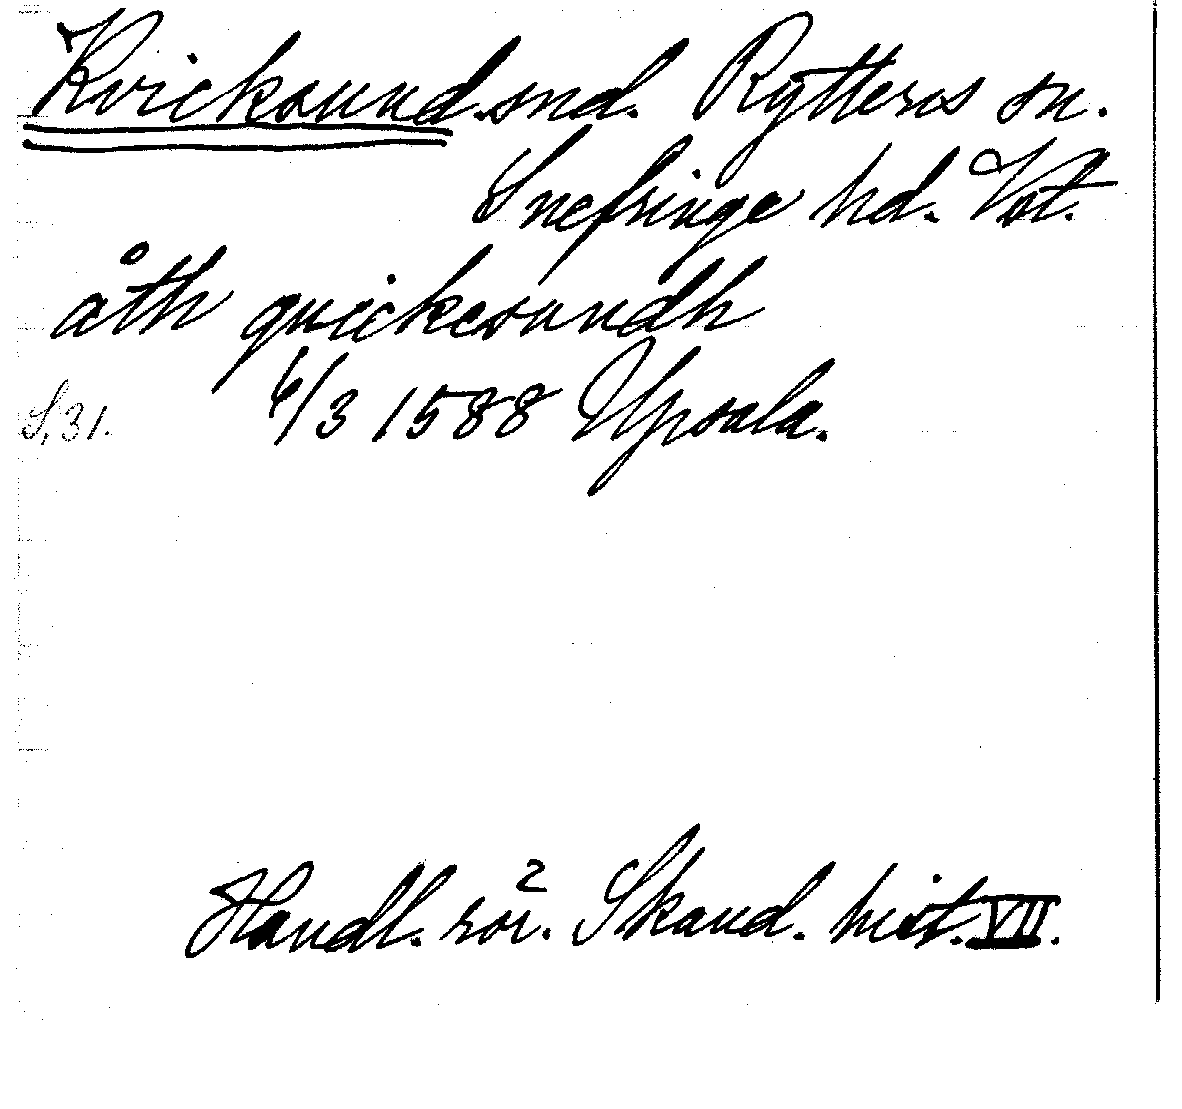 Kvicksund. snd. Rytterns sn.
Snefringe hd. Vst.
åth quickesundh
S. 31. 6/3 1588 Upsala.
Handl. rör. Skand. hist. VII.